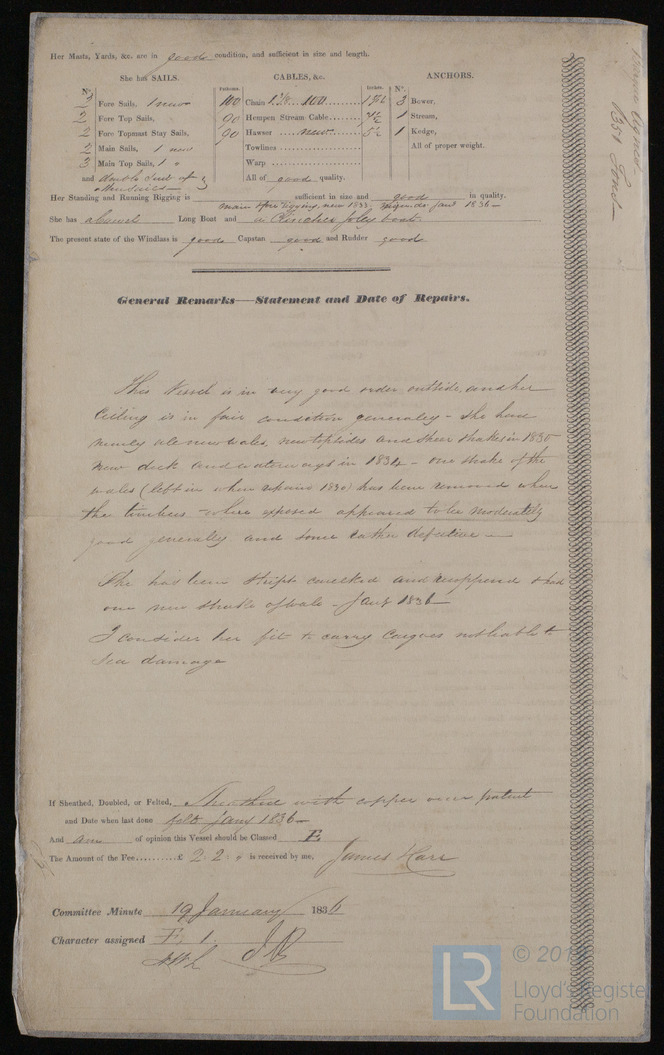 Her Masts, Yards, &c. are in good condition, and sufficient in size and length.
She has SAILS. CABLES, &c. ANCHORS.
N°. Fathoms. Inches. N°.
2 Fore Sails, 1 new 100 Chain 100 3 Bower,
2 Fore Top Sails, 90 Hempen Stream Cable 7½ 1 Stream,
2 Fore Topmast Stay Sails, 90 Hawser new 5½ 1 Kedge,
2 Main Sails, 1 new Towlines All of proper weight.
3 Main Top Sails, 1 " Warp
and double suit of All of good quality.
other sails
Her Standing and Running Rigging is sufficient in size and good in quality.
main & fore rigging new 1833, 1836
She has a Long Boat and a Clincher Jolly boat
The present state of the Windlass is good Capstan good and Rudder good
General Remarks—Statement and Date of Repairs.
This Vessel is in very good order outside, and her
Ceiling is in fair condition generally - She had
nearly all new wales, new topsides and shear strakes in 1830
new deck and waterways in 1834 - one strake of the
wales (left in when repaird 1830) has been removed when
the timbers where exposed appeared to be moderately
good generally and some rather defective
She has been stript caulked and recoppered & had
one new strake of wale - Jany 1836
I consider her fit to carry Cargoes not liable to
Sea damage
If Sheathed, Doubled, or Felted, Sheathed with copper over patent
and Date when last done felt Jany 1836
And am of opinion this Vessel should be Classed E
The Amount of the Fee £ 2 2 " is received by me, James Karr
Committee Minute 19 January 1836
Character assigned E. 1.
351 Tons
© 201
Lloyd's Register
Foundation
LR